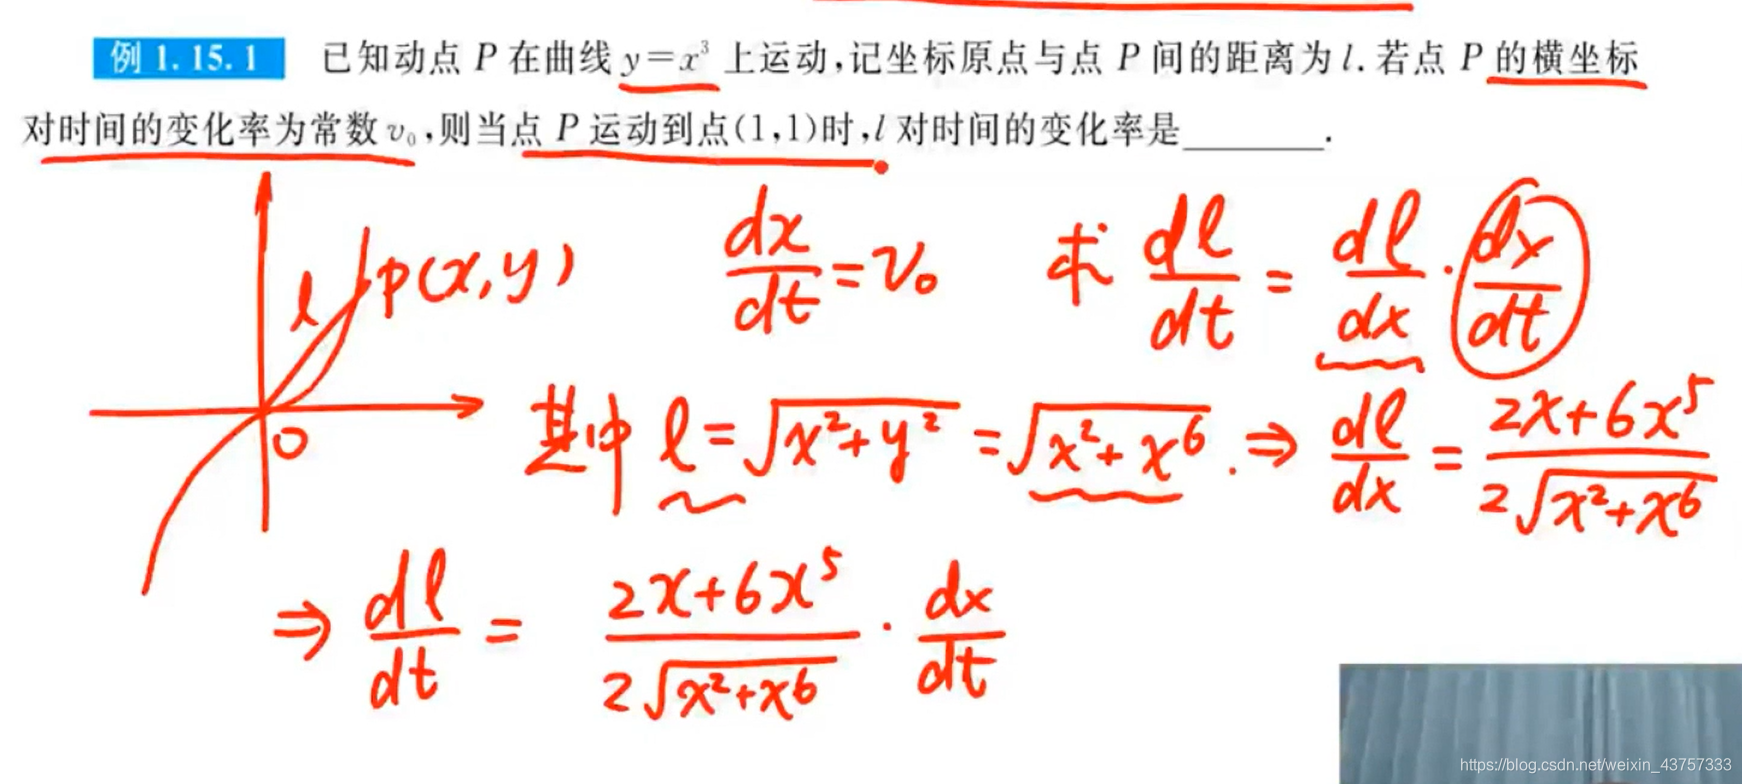 例 1.15.1 已知动点 P 在曲线 y=x³ 上运动,记坐标原点与点 P 间的距离为 l.若点 P 的横坐标
对时间的变化率为常数 v₀,则当点 P 运动到点(1,1)时,l 对时间的变化率是________.
l P(x,y) dx/dt=v₀ 求 dl/dt = dl/dx · dx/dt
O 其中 l=√(x²+y²) =√(x²+x⁶). ⇒ dl/dx = (2x+6x⁵)/(2√(x²+x⁶))
⇒ dl/dt = (2x+6x⁵)/(2√(x²+x⁶)) · dx/dt
https://blog.csdn.net/weixin_43757333